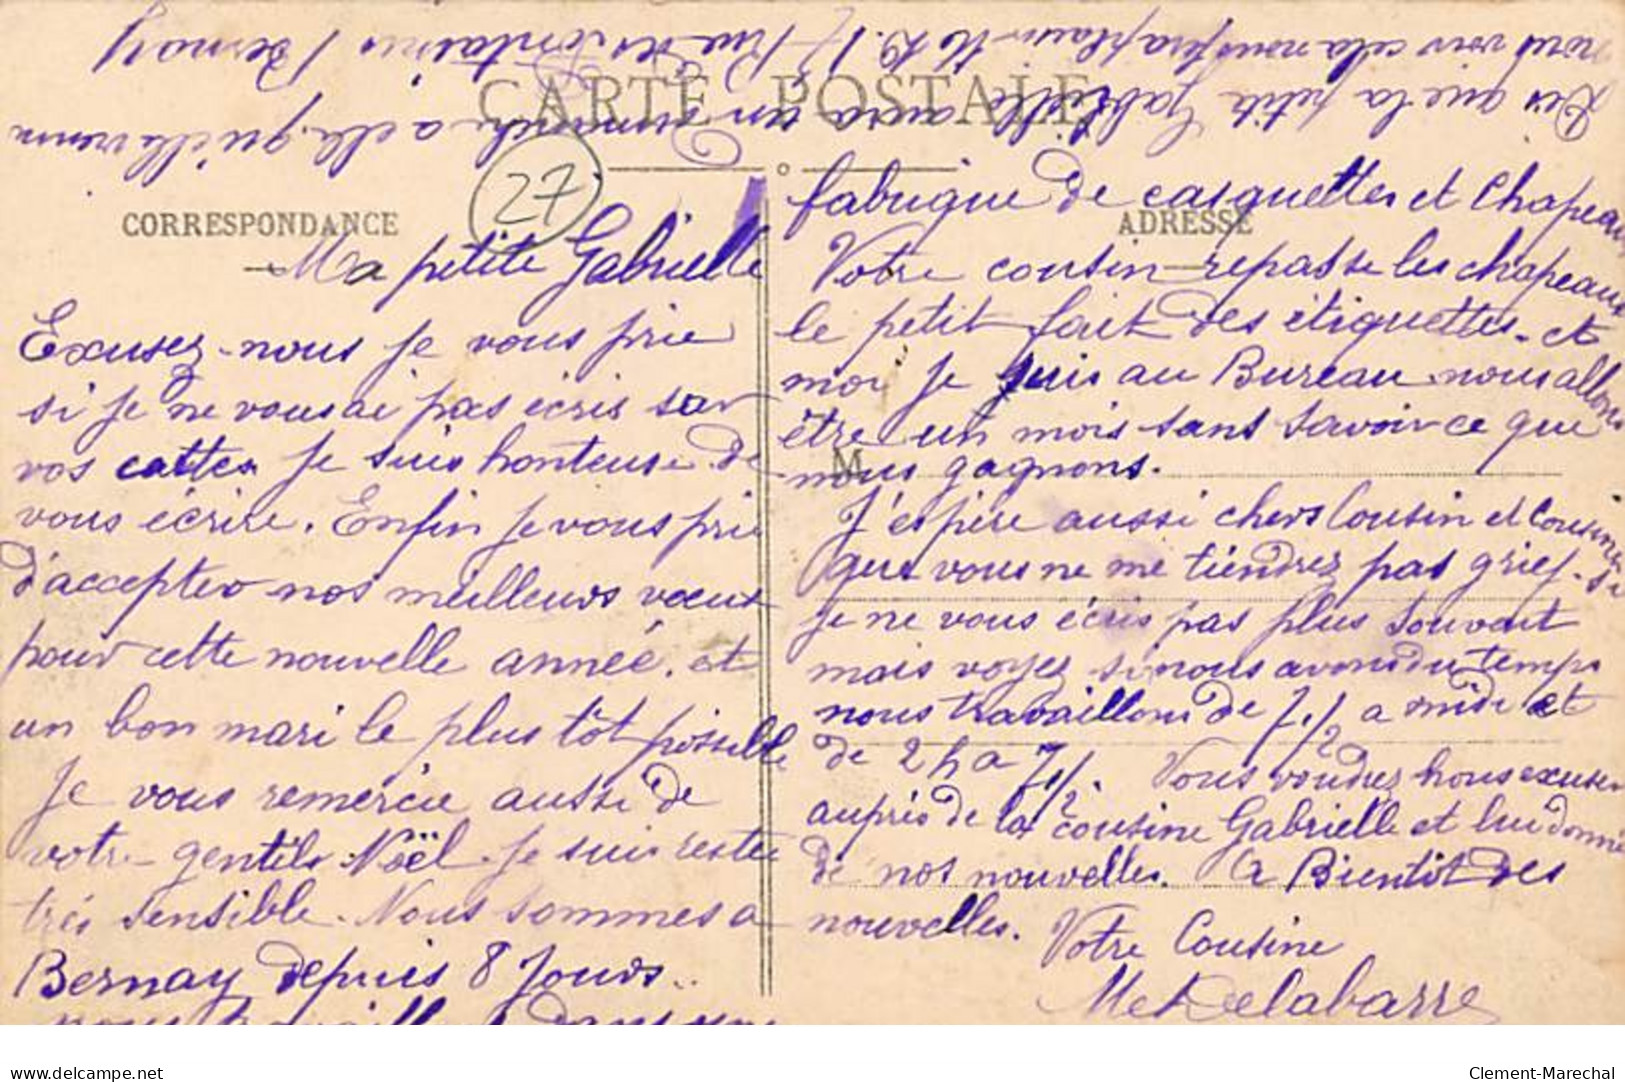 CARTE POSTALE
27
CORRESPONDANCE
ADRESSE
M
Ma petite Gabrielle
Excusez-nous je vous prie
si je ne vous ai pas écris sur
vos cattes je suis honteuse de
vous écrire. Enfin je vous prie
d'accepter nos meilleurs vœux
pour cette nouvelle année. et
un bon mari le plus tôt possible
Je vous remercie aussi de
votre gentils Noël je suis restée
très sensible. Nous sommes a
Bernay depuis 8 jours..
nous travaillons dans une
fabrique de casquettes et chapeaux
Votre cousin repasse les chapeaux
le petit fait des étiquettes. et
moi je suis au Bureau nous allons
être un mois sans savoir ce que
nous gagnons.
J'espère aussi chers Cousin et Cousine
que vous ne me tiendrez pas grief. si
je ne vous écris pas plus souvent
mais voyez si nous avons du temps
nous travaillons de 7.1/2 a midi et
de 2 h a 7 1/2. Vous voudrez nous excuser
auprès de la cousine Gabrielle et lui donné
de nos nouvelles. A Bientôt des
nouvelles. Votre Cousine
Me Delabarre
Dès que la petite Gabrielle aura un dimanche a elle qu'elle vienne
nous voir cela nous fera plaisir M D. 17 Rue des Fontaines Bernay
delcampe.net
Clement-Marechal